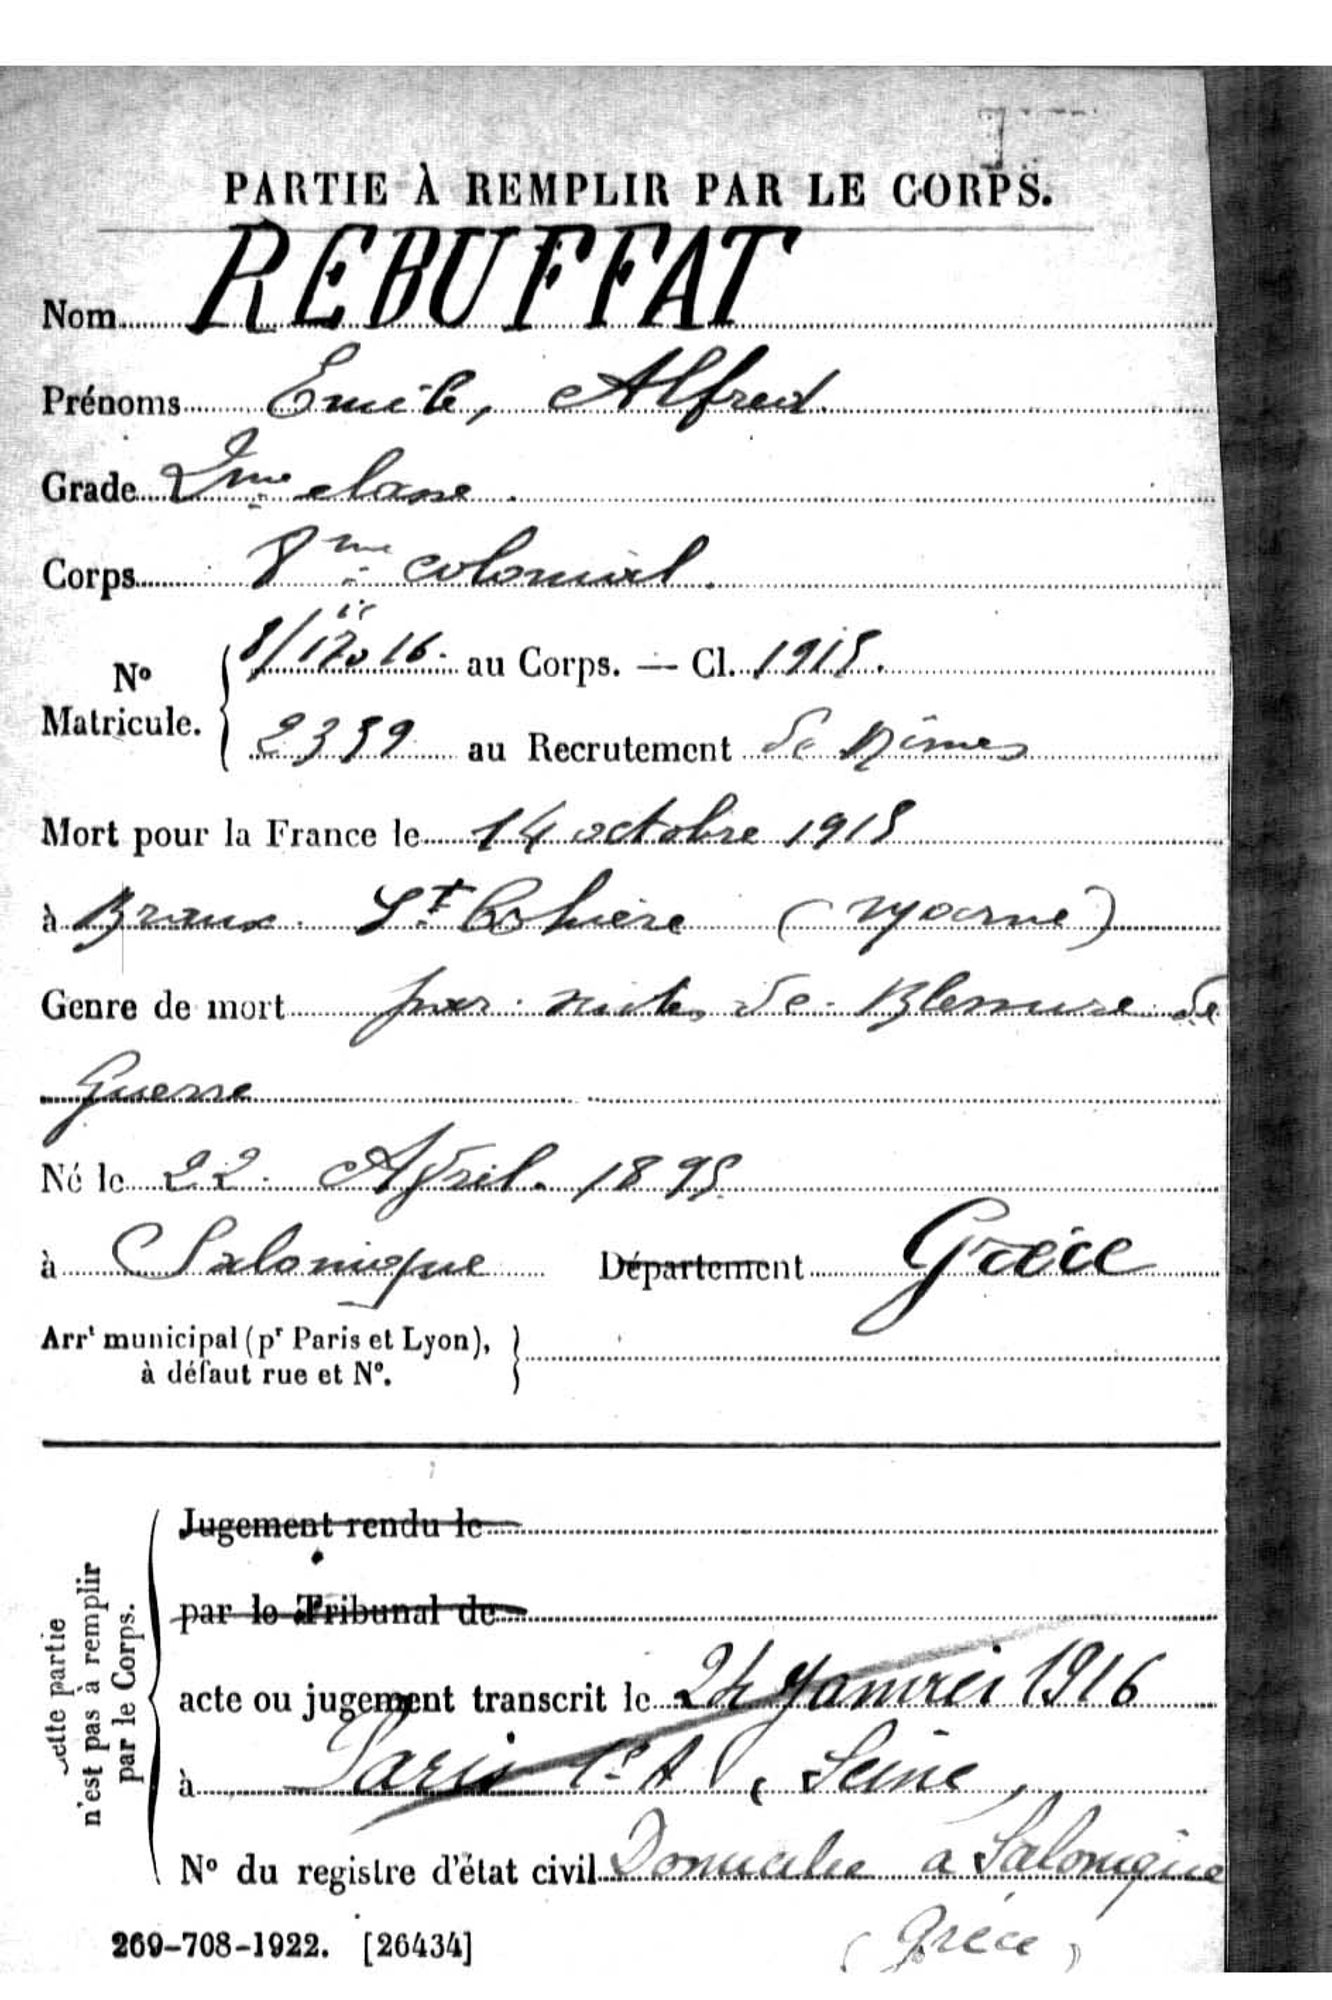 PARTIE À REMPLIR PAR LE CORPS.
Nom REBUFFAT
Prénoms Emile, Alfred
Grade 2me classe
Corps 8me colonial.
No Matricule. au Corps. — Cl. 1915.
2359 au Recrutement de Nîmes
Mort pour la France le 14 octobre 1915
à Braux St Cohière (Marne)
Genre de mort par suites de Blessure de
Guerre
Né le 22 Avril. 1895
à Salonique Département Grèce
Arrt municipal (pr Paris et Lyon),
à défaut rue et No.
Cette partie
n'est pas à remplir
par le Corps.
Jugement rendu le
par le Tribunal de
acte ou jugement transcrit le 24 Janvier 1916
à Paris 1er A (Seine)
No du registre d'état civil Domicilié a Salonique
(Grèce)
269-708-1922. [26434]